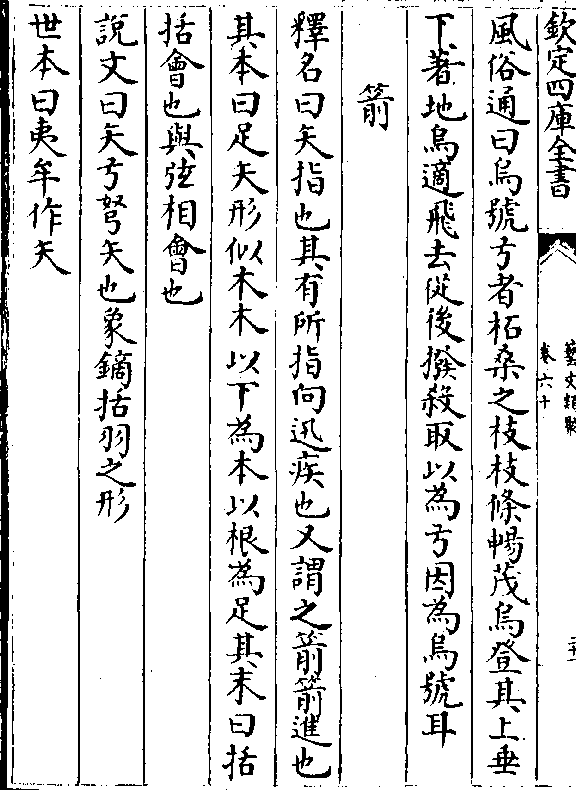 欽定四庫全書
藝文類聚
卷六十
風俗通曰烏號弓者柘桑之枝枝條暢茂烏登其上垂
下著地烏適飛去從後撥殺取以為弓因為烏號耳
箭
釋名曰矢指也其有所指向迅疾也又謂之箭箭進也
其本曰足矢形似木木以下為本以根為足其末曰括
括會也與弦相會也
說文曰矢弓弩矢也象鏑括羽之形
世本曰夷牟作矢